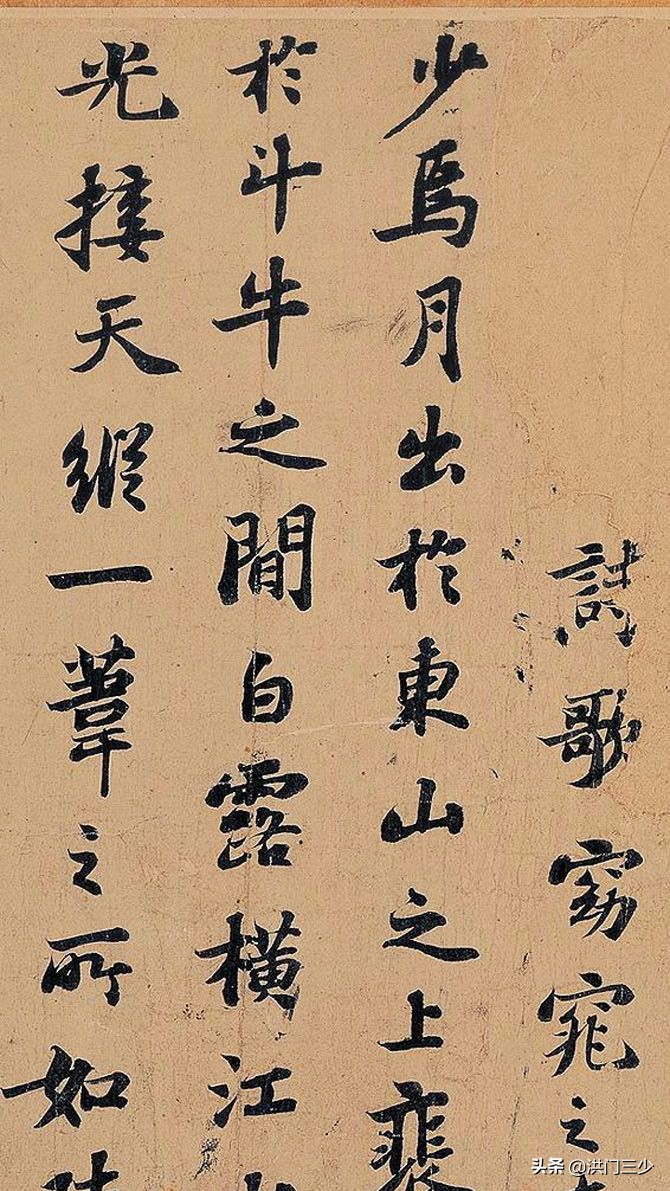 詩歌窈窕之
少焉月出於東山之上裴
於斗牛之間白露橫江
光接天縱一葦之所如
头条 @洪门三少